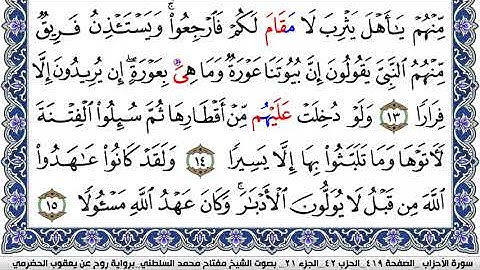 مِّنْهُمْ يَـٰٓأَهْلَ يَثْرِبَ لَا مَقَامَ لَكُمْ فَٱرْجِعُوا۟ۚ وَيَسْتَـْٔذِنُ فَرِيقٌ
مِّنْهُمُ ٱلنَّبِىَّ يَقُولُونَ إِنَّ بُيُوتَنَا عَوْرَةٌ وَمَا هِىَ بِعَوْرَةٍۖ إِن يُرِيدُونَ إِلَّا
فِرَارًا ١٣ وَلَوْ دُخِلَتْ عَلَيْهُم مِّنْ أَقْطَارِهَا ثُمَّ سُئِلُوا۟ ٱلْفِتْنَةَ
لَـَٔاتَوْهَا وَمَا تَلَبَّثُوا۟ بِهَا إِلَّا يَسِيرًا ١٤ وَلَقَدْ كَانُوا۟ عَـٰهَدُوا۟
ٱللَّهَ مِن قَبْلُ لَا يُوَلُّونَ ٱلْأَدْبَـٰرَۚ وَكَانَ عَهْدُ ٱللَّهِ مَسْـُٔولًا ١٥
سورة الأحزاب _ الصفحة ٤١٩_ الحزب ٤٢_ الجزء ٢١ _ بصوت الشيخ مفتاح محمد السلطني_ برواية روح عن يعقوب الحضرمي